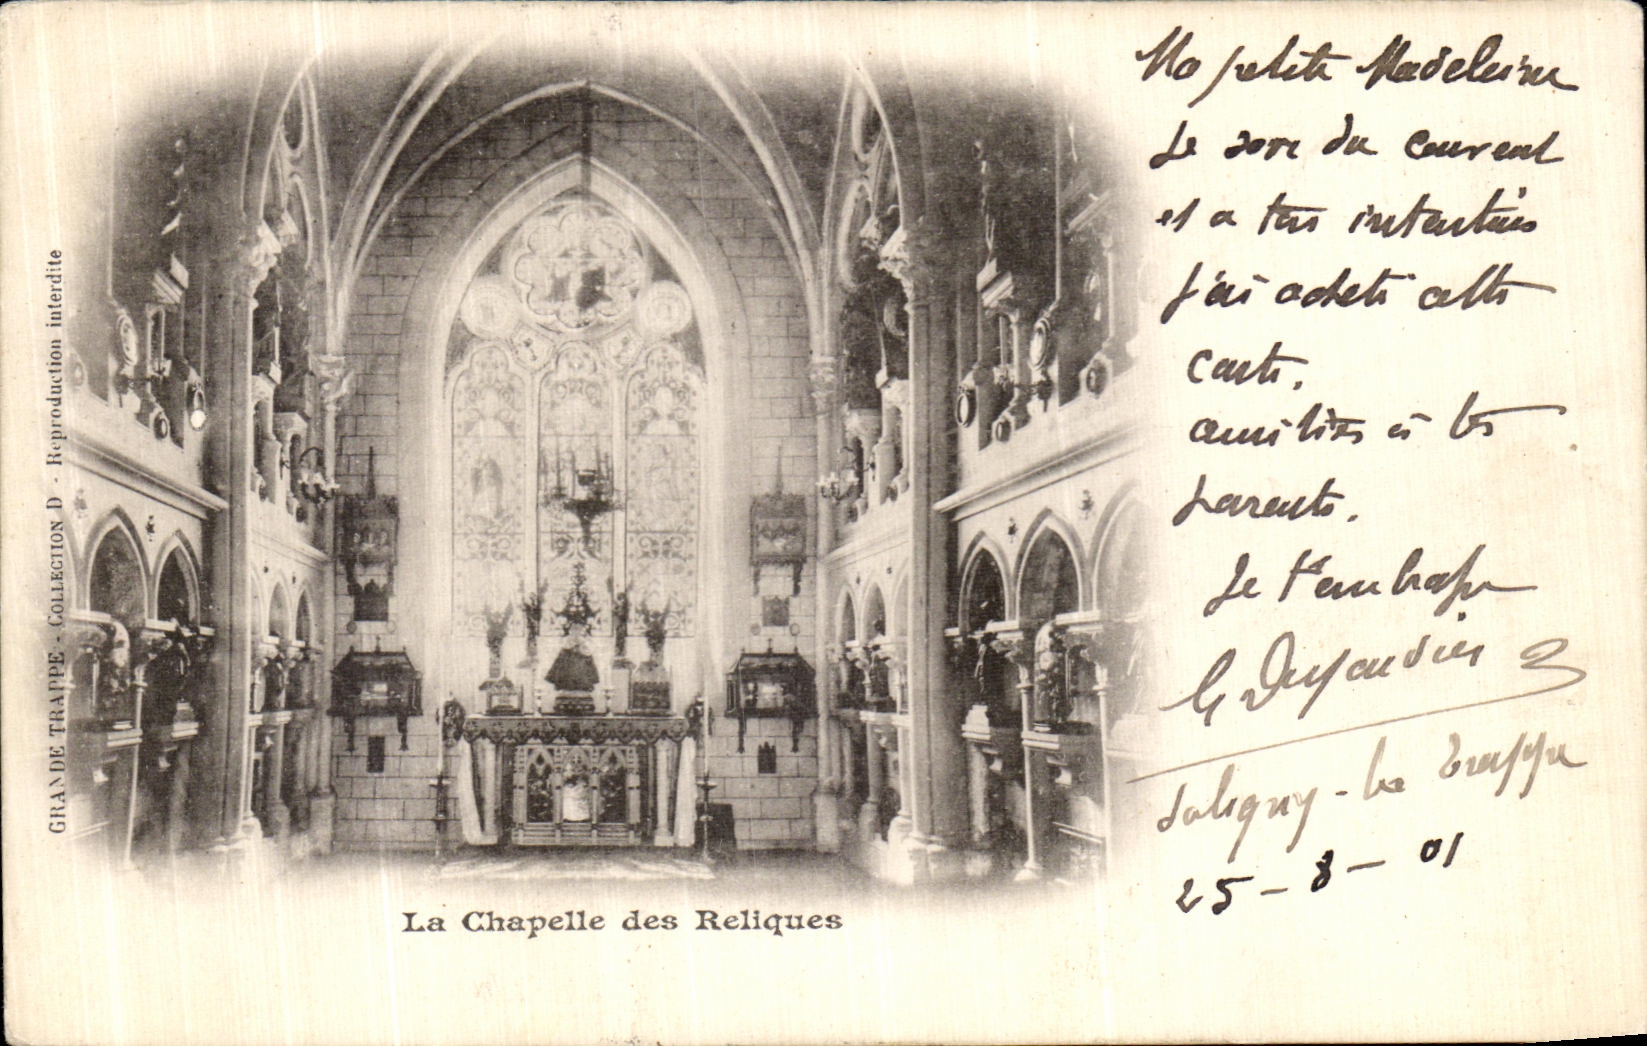 GRANDE TRAPPE - COLLECTION D - Reproduction interdite
La Chapelle des Reliques
Ma petite Madeleine
Je sors du couvent
et a ton intention
j'ai acheté cette
carte.
amitiés à tes
parents.
Je t'embrasse
Soligny - la Trappe
25 - 8 - 01